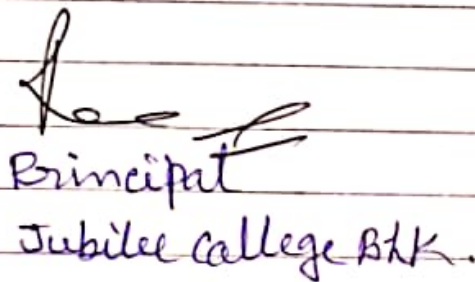 Principal
Jubilee College BLK.